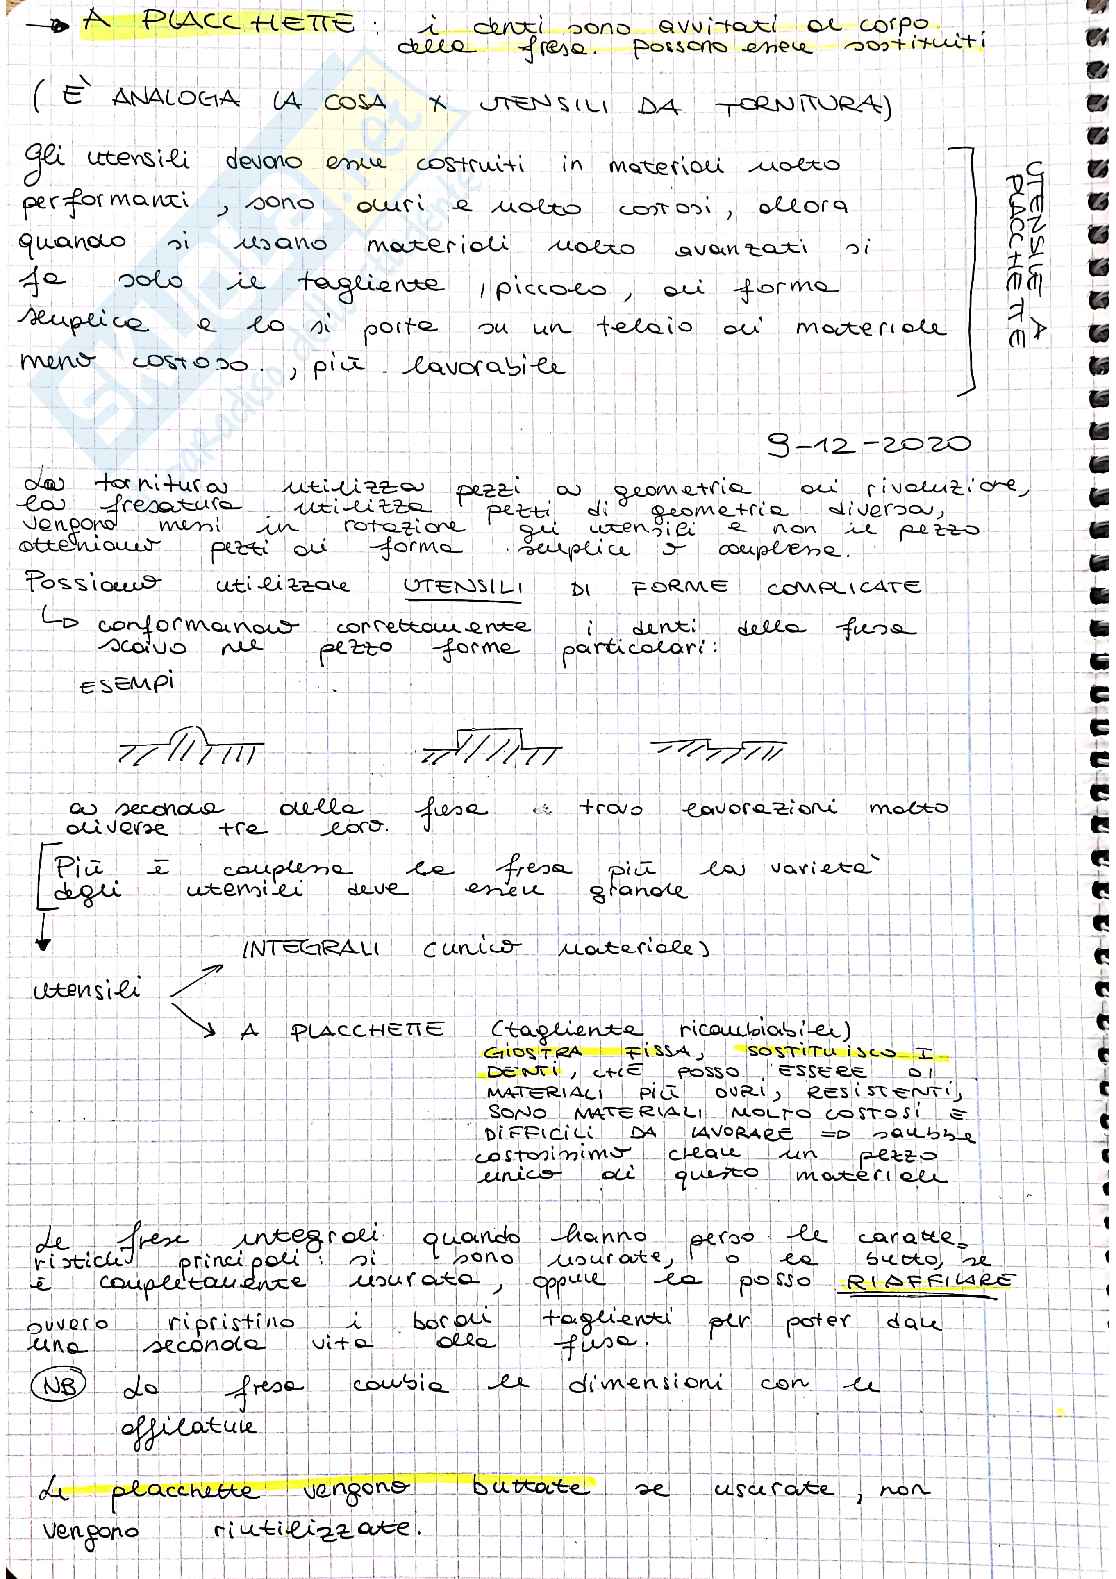 → A PLACCHETTE : i denti sono avvitati al corpo
della fresa. possono essere sostituiti
( È ANALOGA LA COSA X UTENSILI DA TORNITURA)
Gli utensili devono essere costruiti in materiali molto
performanti, sono duri e molto costosi, allora
quando si usano materiali molto avanzati si
fa solo il tagliente, piccolo, di forma
semplice e lo si porta su un telaio di materiale
meno costoso., più lavorabile
UTENSILE A
PLACCHETTE
9-12-2020
La tornitura utilizza pezzi a geometria di rivoluzione,
la fresatura utilizza pezzi di geometria diversa,
vengono messi in rotazione gli utensili e non il pezzo
otteniamo pezzi di forma semplice o complessa.
Possiamo utilizzare UTENSILI DI FORME COMPLICATE
↳ conformando correttamente i denti della fresa
scavo nel pezzo forme particolari:
ESEMPI
a seconda della fresa trovo lavorazioni molto
diverse tra loro.
Più è complessa la fresa più la varietà
degli utensili deve essere grande
INTEGRALI (unico materiale)
utensili
A PLACCHETTE (tagliente ricambiabile)
GIOSTRA FISSA, SOSTITUISCO I
DENTI, CHE POSSO ESSERE DI
MATERIALI PIÙ DURI, RESISTENTI,
SONO MATERIALI MOLTO COSTOSI E
DIFFICILI DA LAVORARE => sarebbe
costosissimo creare un pezzo
unico di questo materiale
Le frese integrali quando hanno perso le caratte-
ristiche principali: si sono usurate, o la butto, se
è completamente usurata, oppure la posso RIAFFILARE
ovvero ripristino i bordi taglienti per poter dare
una seconda vita alla fresa.
NB La fresa cambia le dimensioni con le
affilature
Le placchette vengono buttate se usurate, non
vengono riutilizzate.